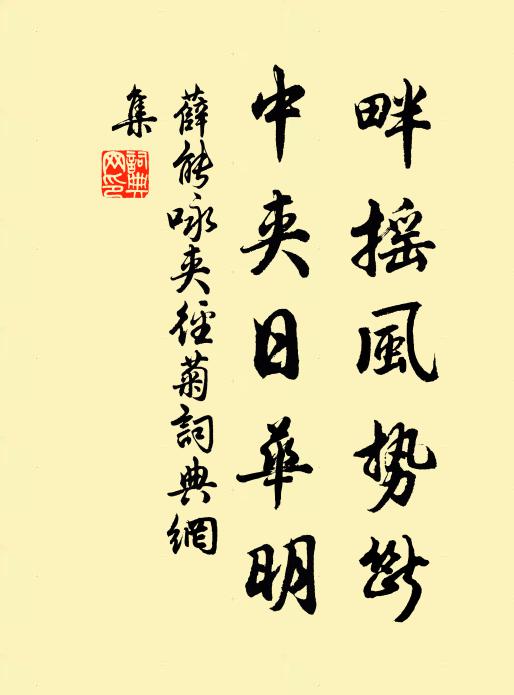 畔搖風勢斷
中夾日華明
薛能咏夾徑菊詞典網
集
詞典网印